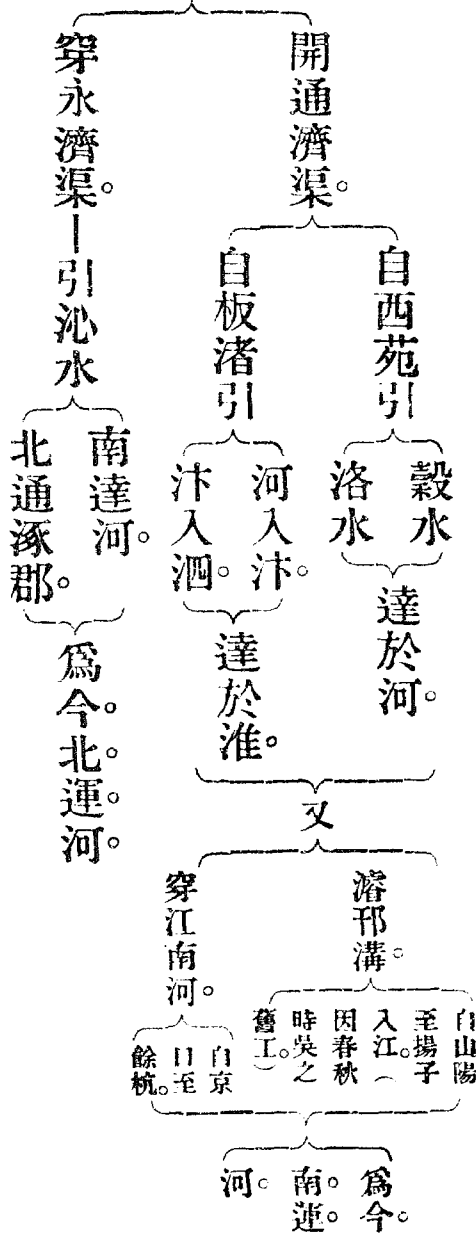 開通濟渠。
自西苑引
穀水
洛水
達於河。
自板渚引
河入汴。
汴入泗。
達於淮。
又
濬邗溝。
自山陽
至揚子
入江。（
因春秋
時吳之
舊工。）
穿江南河。
自京
口至
餘杭。
爲今。
南。運。
河。
穿永濟渠。—引沁水
南達河。
北通涿郡。
爲今。北。運。河。